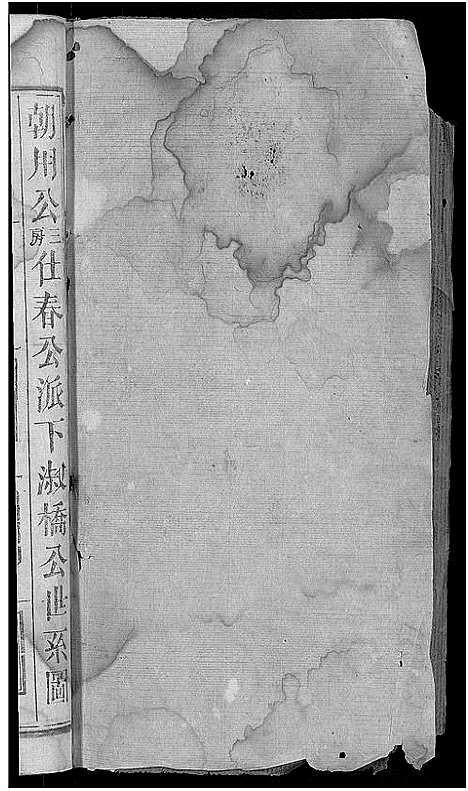 朝用公三房仕春公派下淑橋公世系圖